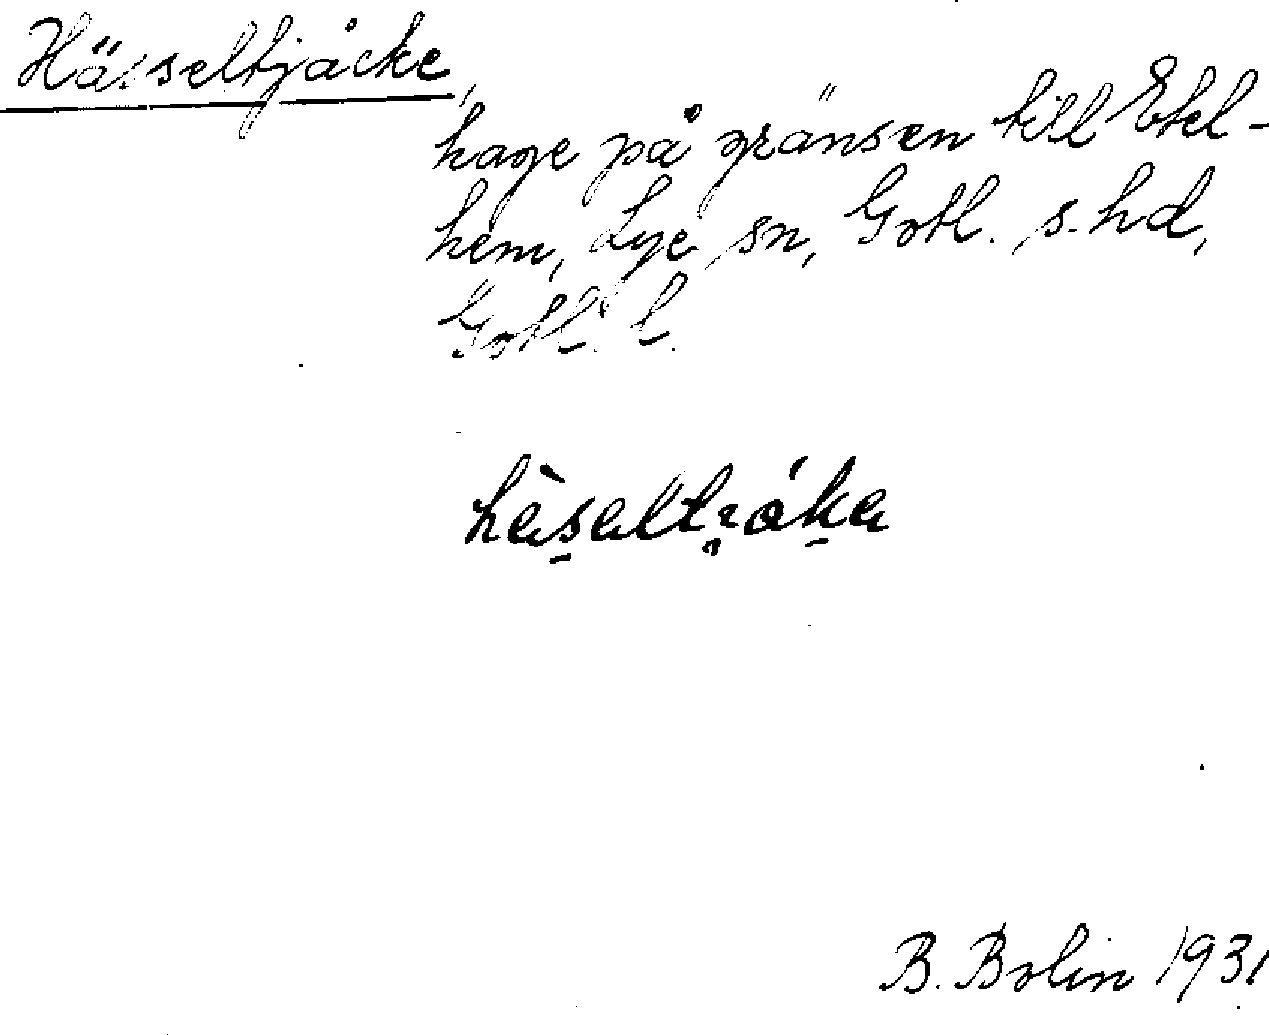 Hässeltjåcke,
hage på gränsen till Etel-
hem, Lye sn, Gotl. s. hd,
Gotl. l.
B. Bolin 1931